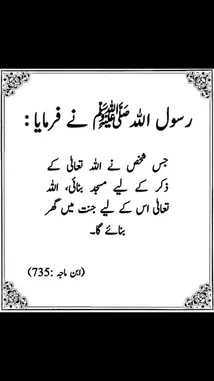 رسول اللہ ﷺ نے فرمایا :
جس شخص نے اللہ تعالیٰ کے
ذکر کے لیے مسجد بنائی، اللہ
تعالیٰ اس کے لیے جنت میں گھر
بنائے گا۔
(ابن ماجہ :735)